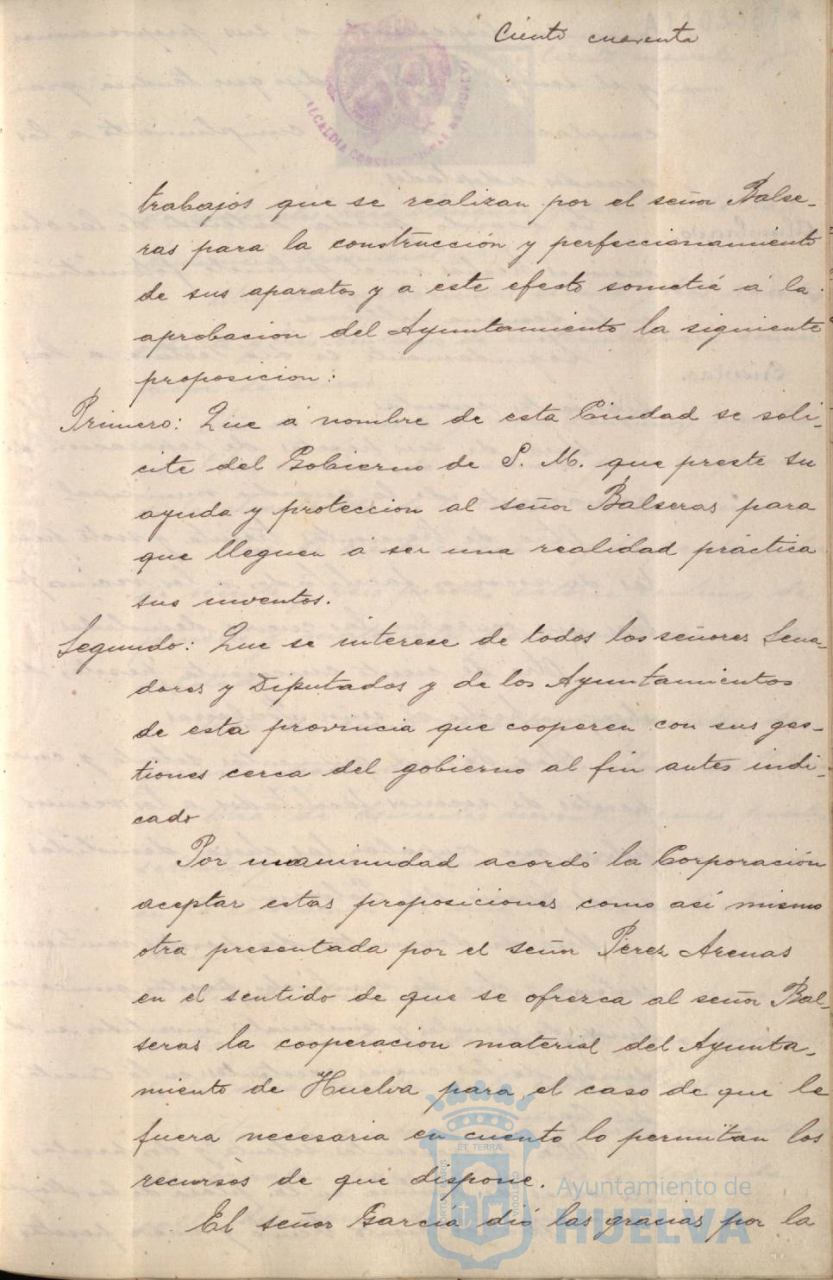 Ciento cuarenta
ALCALDIA CONSTITUCIONAL DE HUELVA
trabajos que se realizan por el señor Balse-
ras para la construcción y perfeccionamiento
de sus aparatos y a este efecto sometia á la
aprobacion del Ayuntamiento la siguiente
proposicion:
Primero: Que á nombre de esta Ciudad se soli-
cite del Gobierno de S. M. que preste su
ayuda y proteccion al señor Balseras para
que lleguen á ser una realidad práctica
sus inventos.
Segundo: Que se interese de todos los señores Sena-
dores y Diputados y de los Ayuntamientos
de esta provincia que cooperen con sus ges-
tiones cerca del gobierno al fin antes indi-
cado
Por unanimidad acordó la Corporación
aceptar estas proposiciones como así mismo
otra presentada por el señor Perez Arenas
en el sentido de que se ofrezca al señor Bal-
seras la cooperacion material del Ayunta-
miento de Huelva para el caso de que le
fuera necesaria en cuento lo permitan los
recursos de que dispone.
El señor García dió las gracias por la
ET TERRA
Ayuntamiento de
HUELVA